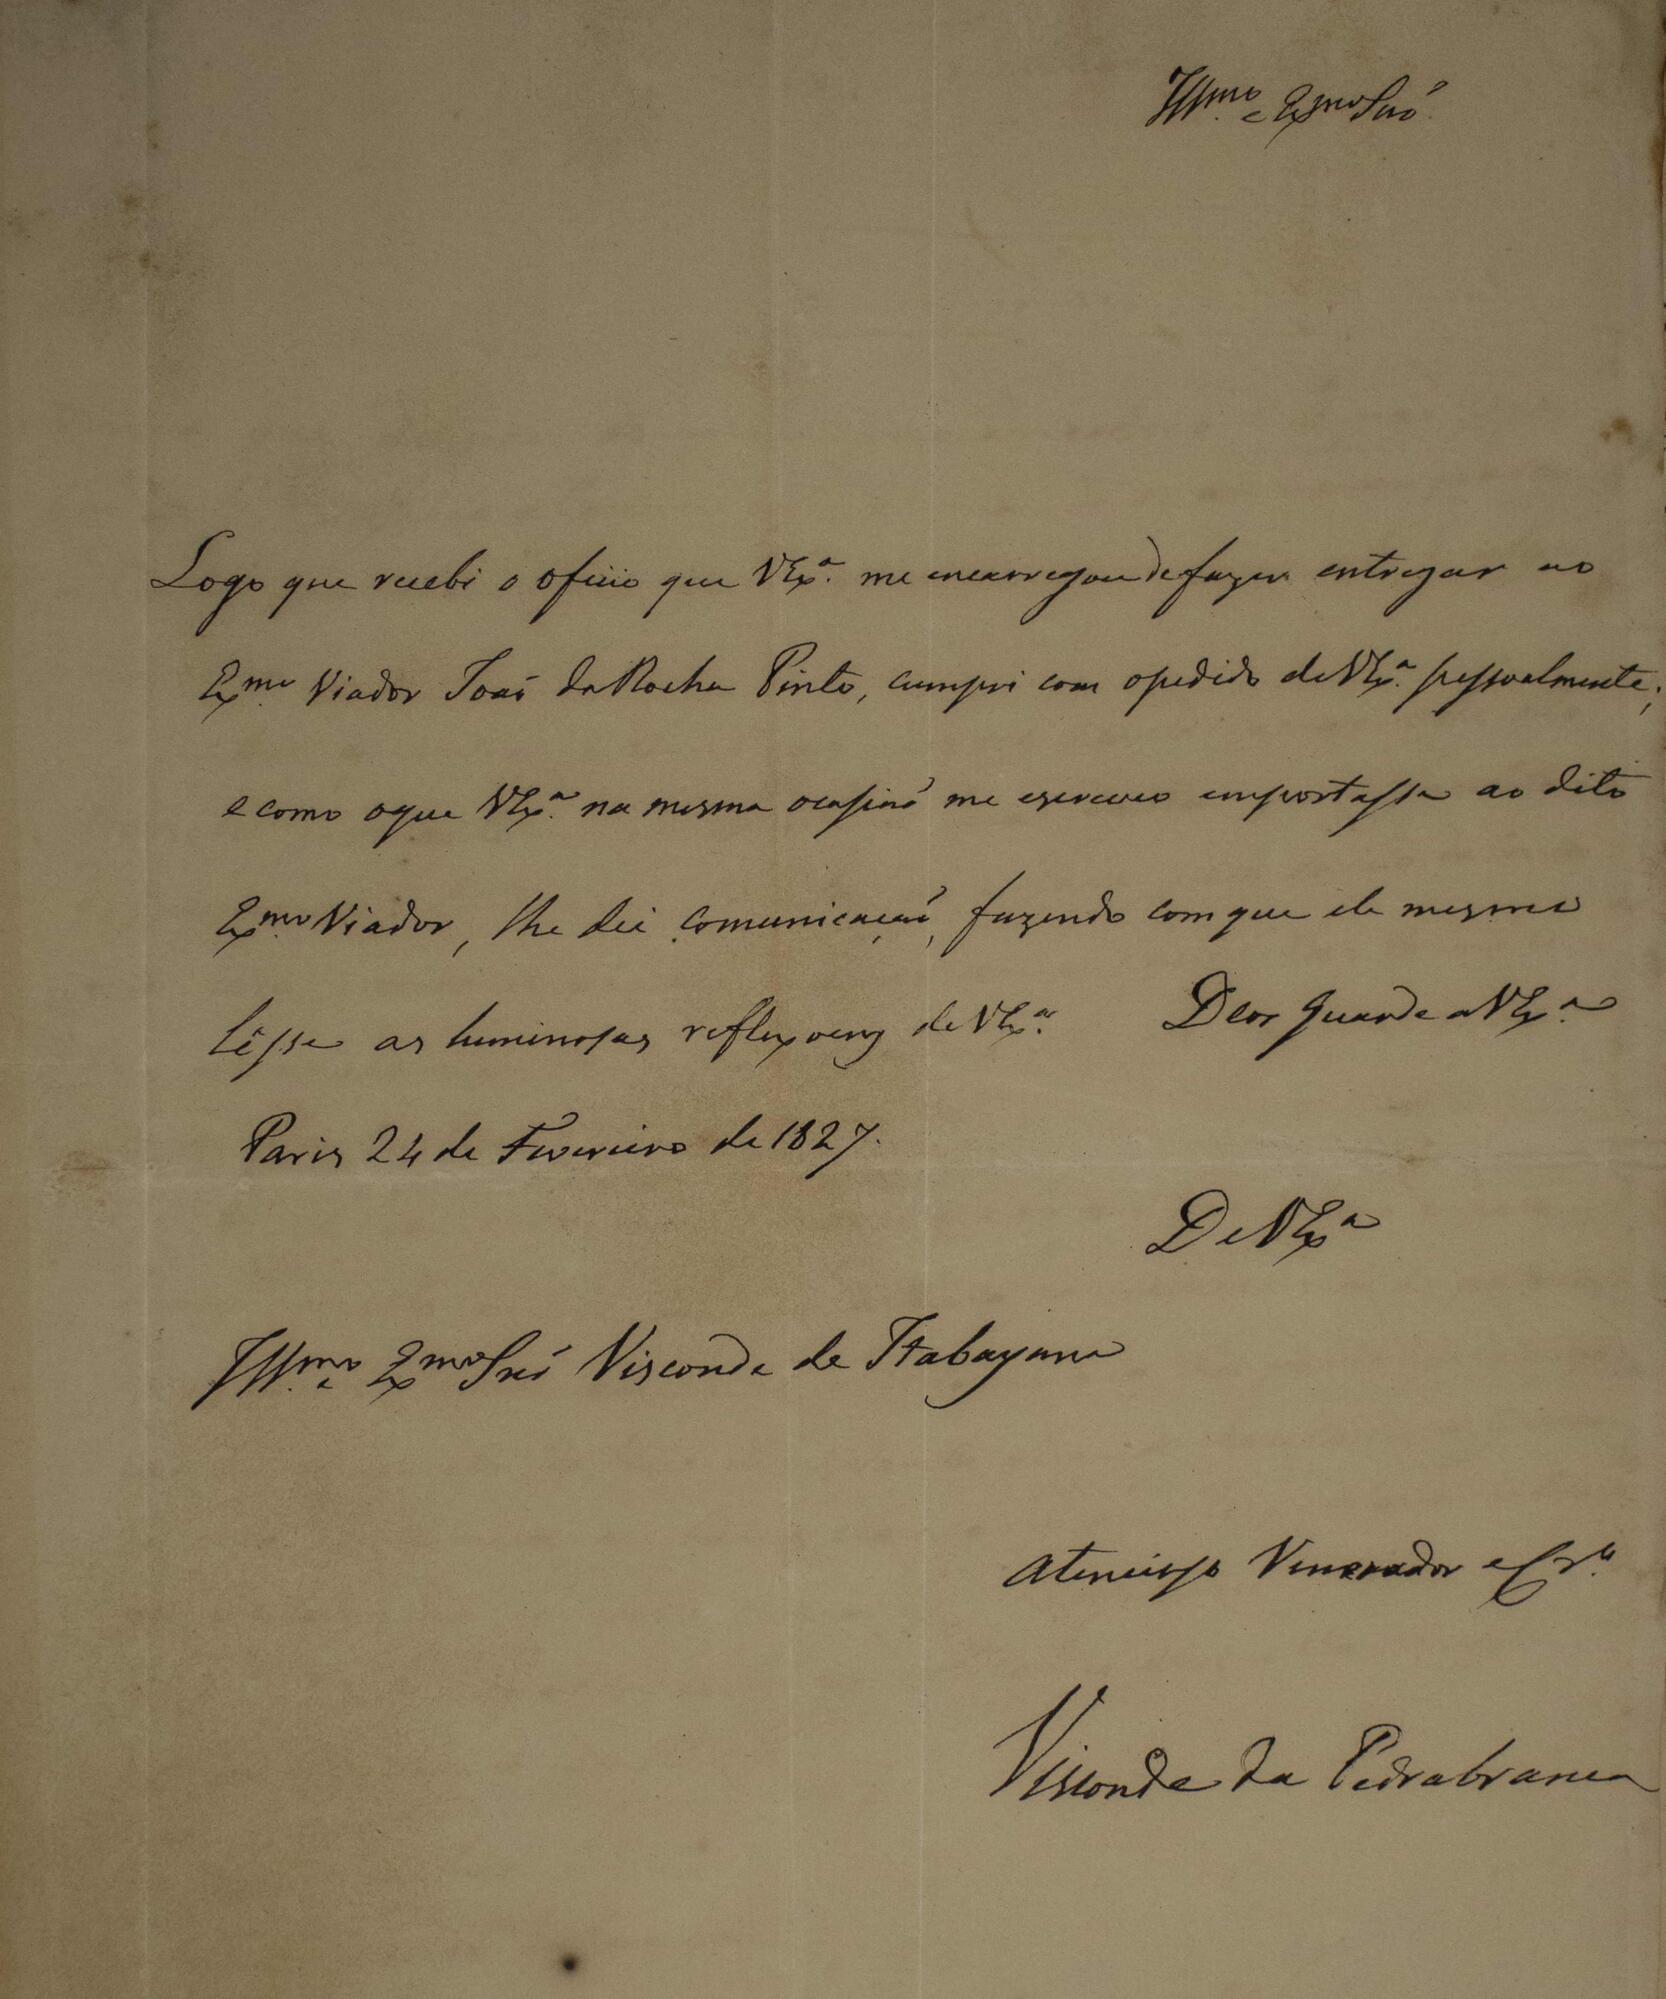 Illmo. e Exmo Snr.
Logo que recebi o oficio que VExa. me encarregou de fazer entregar ao
Exmo. Viador João da Rocha Pinto, cumpri com o pedido de VExa. pessoalmente;
e como o que VExa. na mesma ocasião me escreveo emportasse ao dito
Exmo. Viador, lhe dei comunicação, fazendo com que ele mesmo
lêsse as luminosas reflexoens de VExa. Deos Guarde a VExa.
Paris 24 de Fevereiro de 1827.
De VExa
Illmo. e Exmo Snr. Visconde de Itabayana
Atencioso Venerador e Cro.
Visconde da Pedrabranca